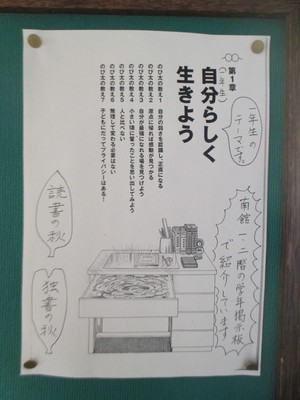 第1章
(1年生)
自分らしく
生きよう
のび太の教え1 自分の弱さを認識し、正直になる
のび太の教え2 原点に帰れば感動が見つかる
のび太の教え3 自分が最強になれる場を見つけよう
のび太の教え4 小さい頃に誓ったことを思い出してみよう
のび太の教え5 人と比べない
のび太の教え6 無理して変わる必要はない
のび太の教え7 子どもにだってプライバシーはある!
一年生の
テーマです。
南館一・二階の学年掲示板
で紹介しています
読書の秋
独書の秋